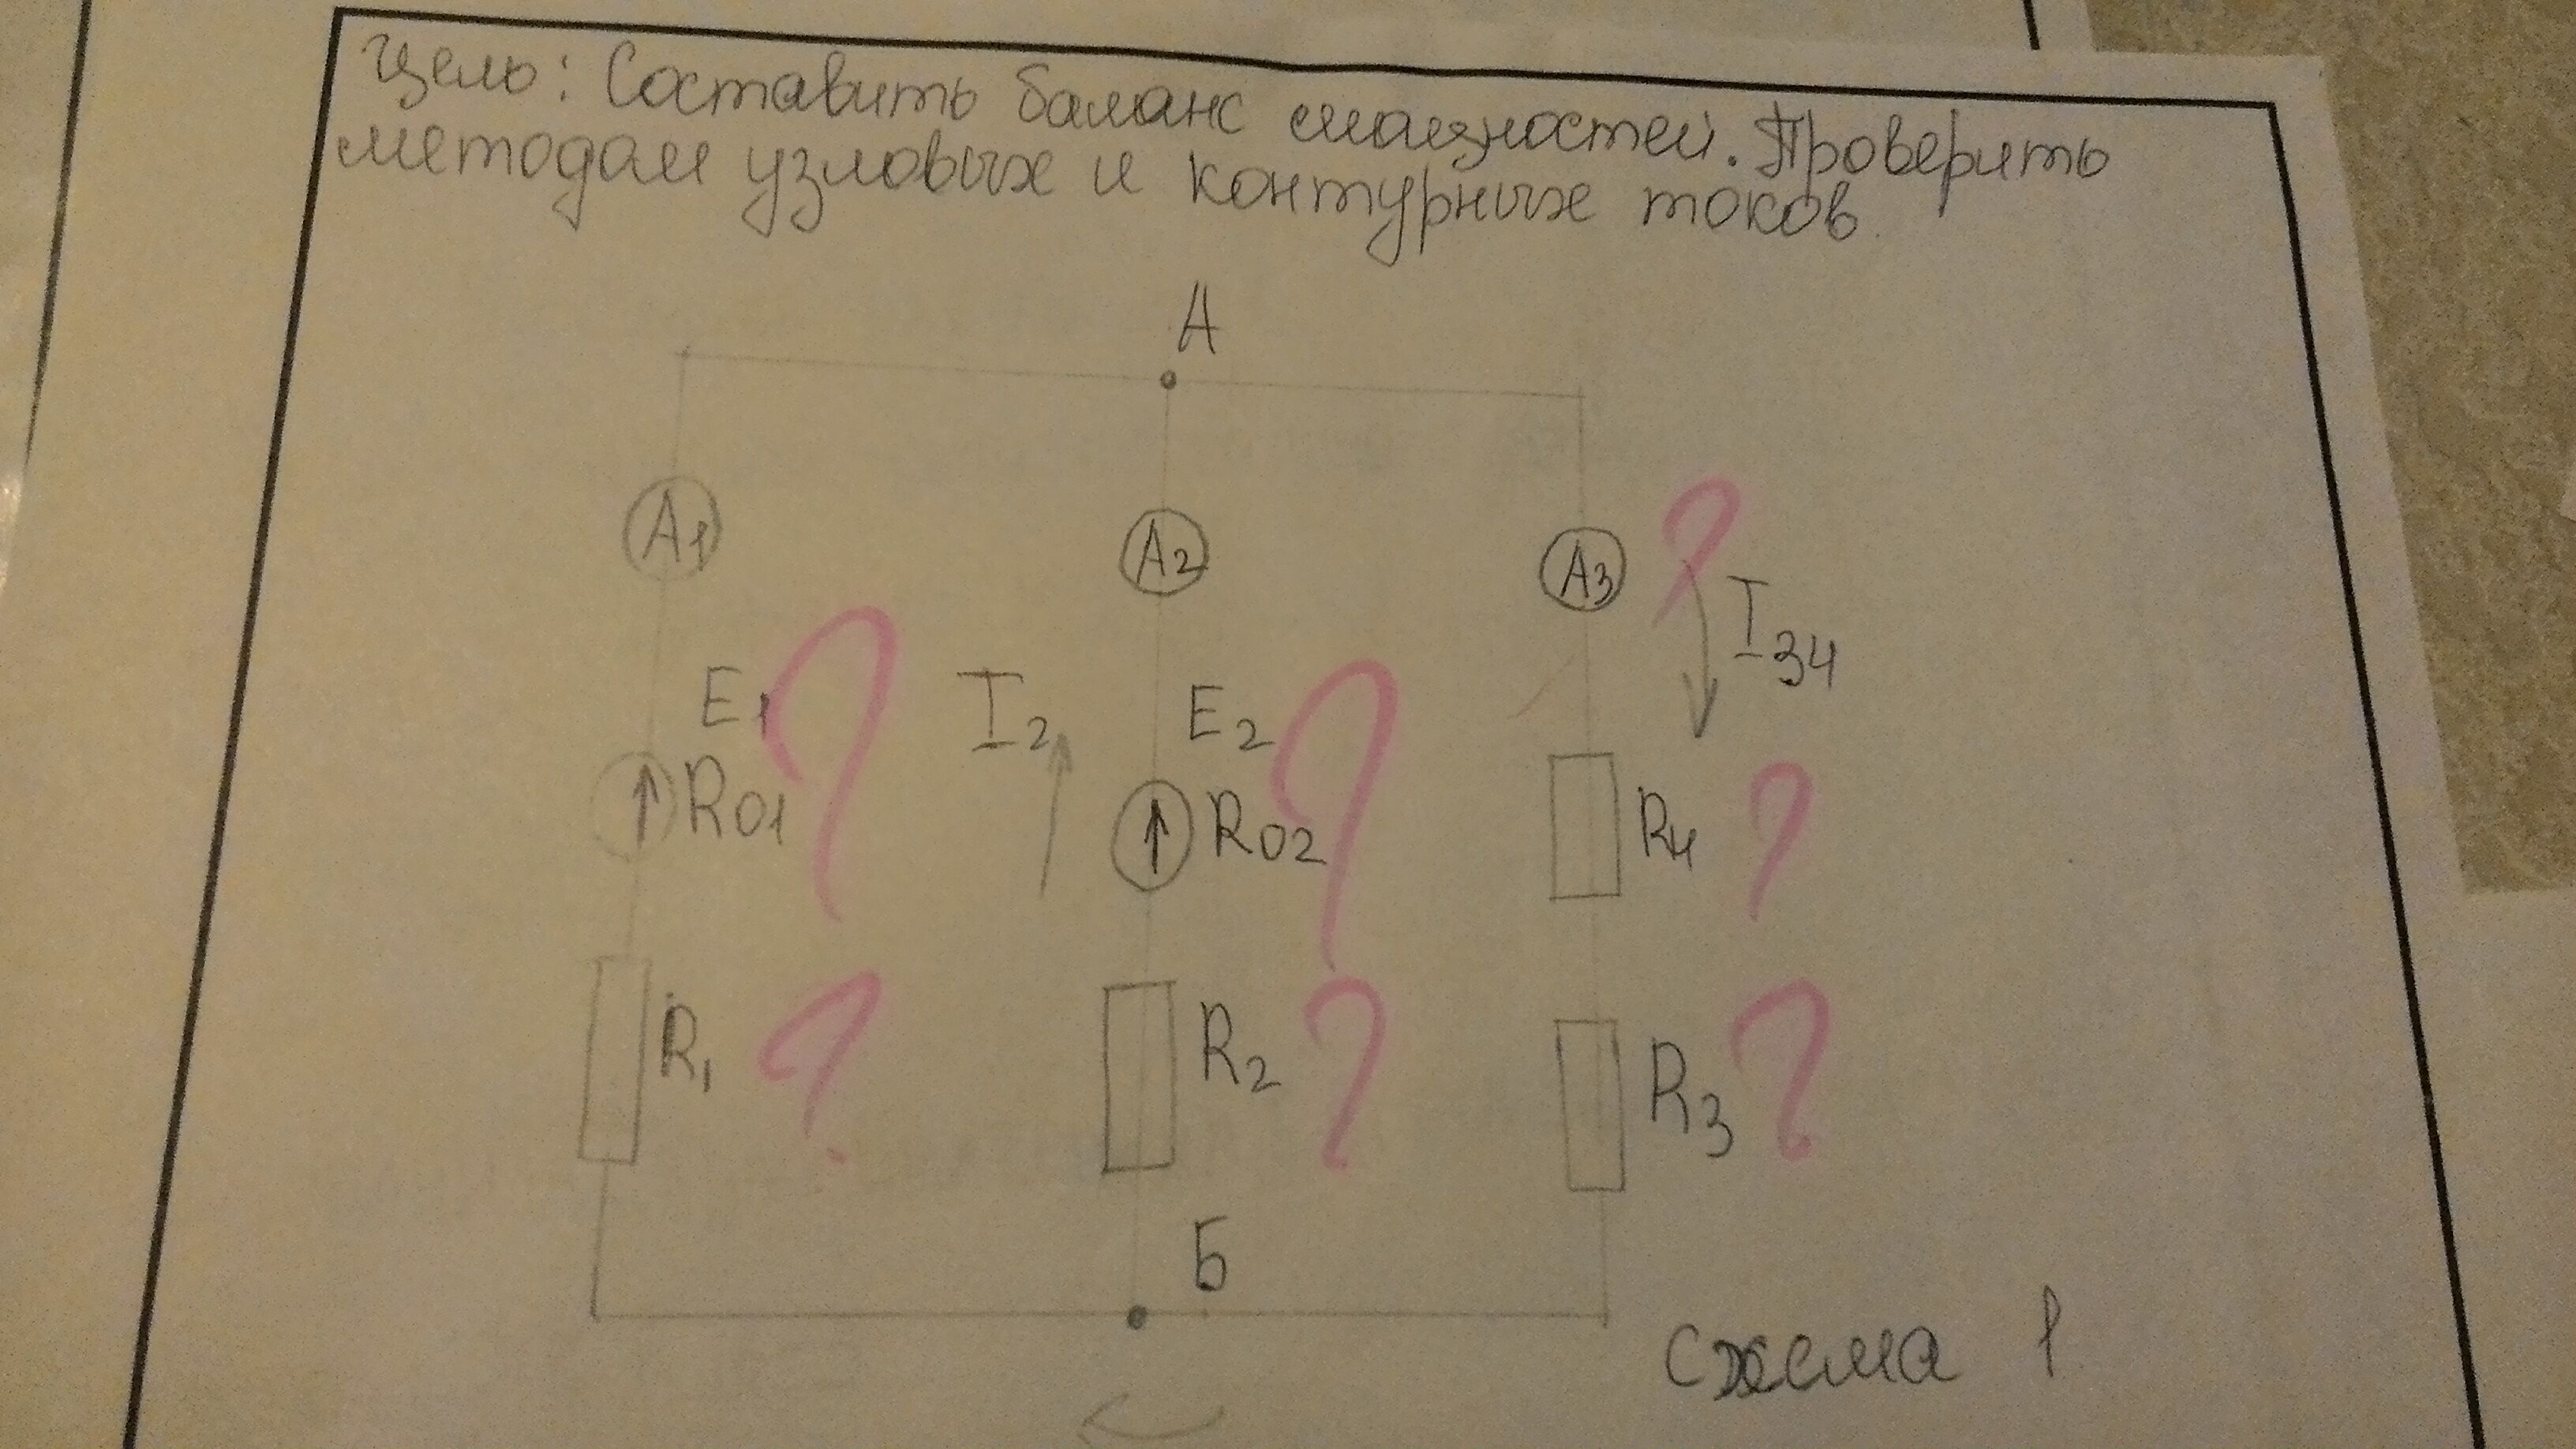 Цель: Составить баланс мощностей. Проверить
методом узловых и контурных токов.
А
А1
А2
А3
?
I34
E1
?
I2
E2
?
R01
R02
R4
?
R1
?
R2
?
R3
?
Б
схема 1